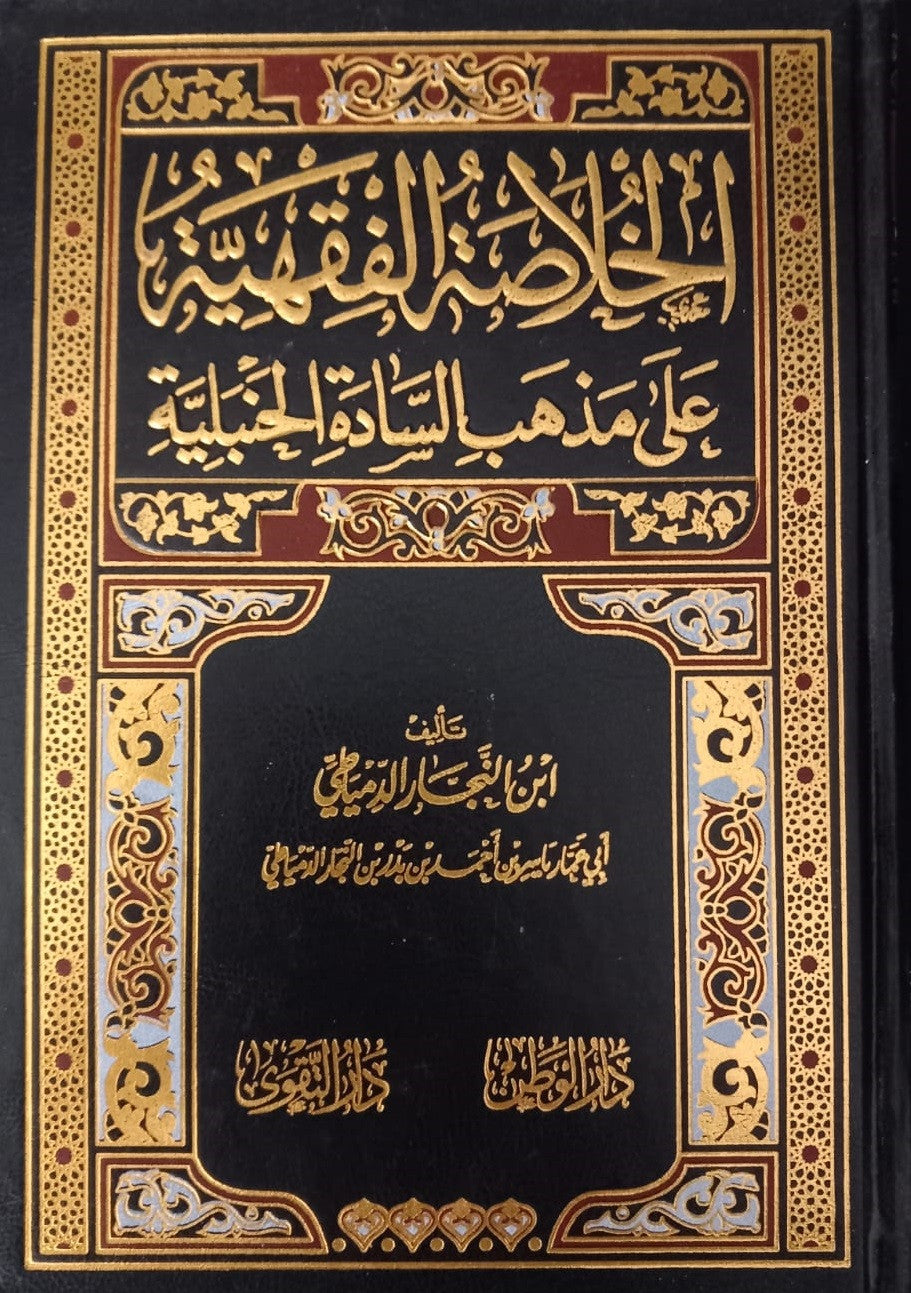 الخُلَاصَةُ الفِقْهِيَّةُ
عَلَى مَذْهَبِ السَّادَةِ الحَنْبَلِيَّةِ
تَأليفُ
ابْنُ النَّجَّارِ الدِّمْيَاطِيّ
أَبِي عَمَّار يَاسِر بْنِ أَحْمَد بْنِ بَدْر بْنِ النَّجَّار الدِّمْيَاطِيّ
دَارُ الوَطَن
دَارُ التَّقْوَى